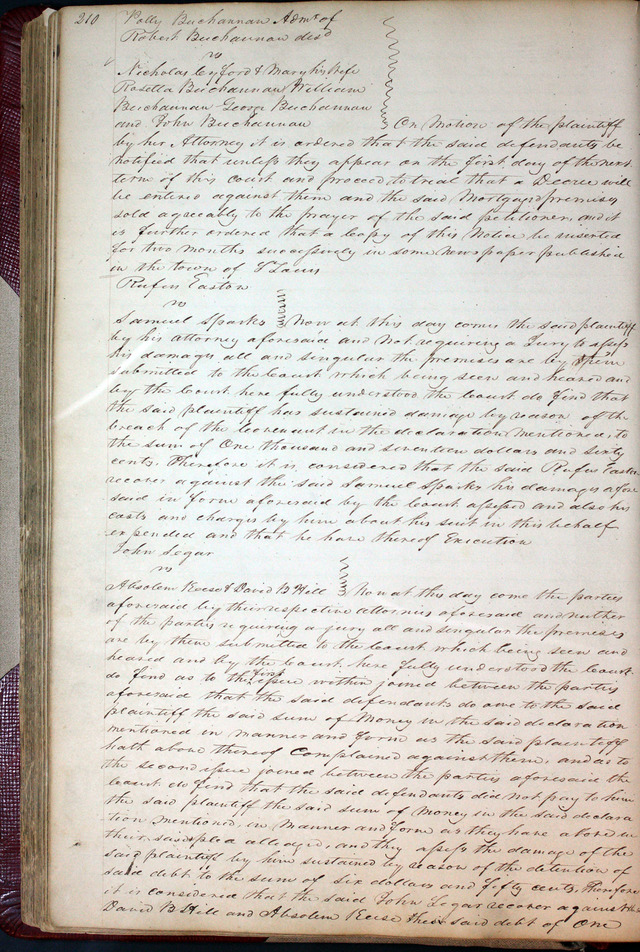 210
Polly Buchannan Admr of
Robert Buchannan decd
vs
Nicholas Cyford & Mary his Wife
Rosella Buchannan William
Buchannan George Buchannan
and John Buchannan On Motion of the plaintiff
by her Attorney it is ordered that the said defendants be
notified that unless they appear on the first day of the next
term of this court and proceed to trial that a Decree will
be entered against them and the said Mortgaged premises
sold agreeably to the prayer of the said petitioner, and it
is further ordered that a Copy of this Notice be inserted
for two months successively in some Newspaper published
in the town of St Louis
Rufus Easton
vs
Samuel Sparks Now at this day comes the said plaintiff
by his attorney aforesaid and not requiring a Jury to assess
his damages all and singular the premises are by them
submitted to the Court which being seen and heard and
by the Court here fully understood the Court do find that
the said plaintiff has sustained damage by reason of the
breach of the Covenant in the declaration mentioned, to
the sum of One thousand and seventeen dollars and sixty
cents, Therefore it is considered that the said Rufus Easton
recover against the said Samuel Sparks his damages afore
said in form aforesaid by the Court assessed and also his
costs and charges by him about his suit in this behalf
expended and that he have thereof Execution
John Segar
vs
Absolem Reese & David B Hill Now at this day come the parties
aforesaid by their respective attornies aforesaid and neither
of the parties requiring a jury all and singular the premises
are by them submitted to the Court which being seen and
heard and by the Court here fully understood the Court
do find as to the first issue within joined between the parties
aforesaid that the said defendants do owe to the said
plaintiff the said sum of Money in the said declaration
mentioned in manner and form as the said plaintiff
hath above thereof complained against them, and as to
the second issue joined between the parties aforesaid the
Court do find that the said defendants did not pay to him
the said plaintiff the said sum of Money in the said declara
tion mentioned, in Manner and form as they have above in
their said plea alledged, and they assess the damage of the
said plaintiff by him sustained by reason of the detention of
said debt to the sum of six dollars and fifty cents, Therefore
it is considered that the said John Segar recover against the
David B Hill and Absolem Reese the said debt of One